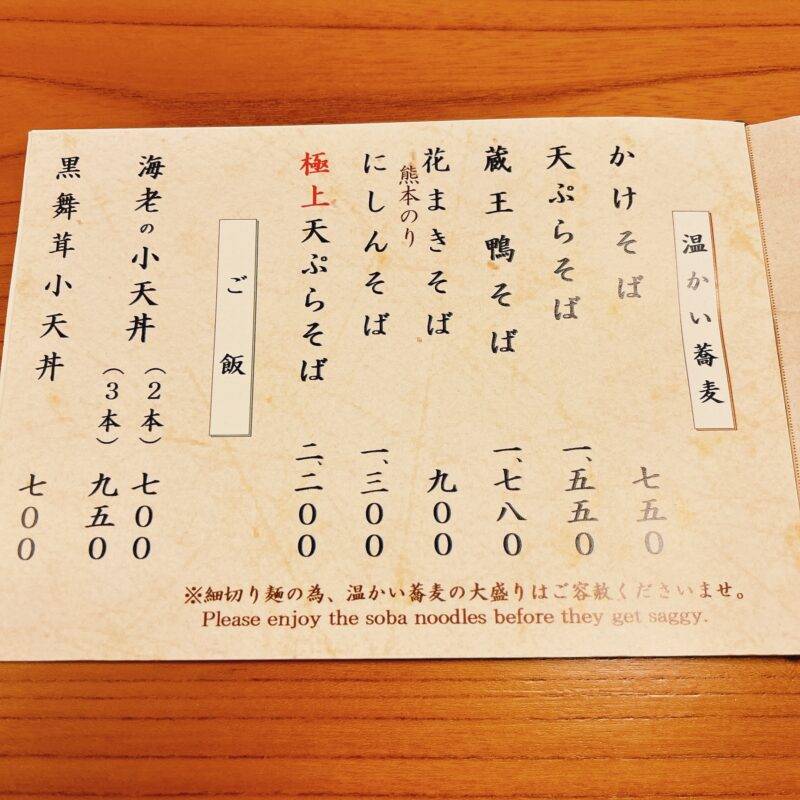 温かい蕎麦
かけそば 七五〇
天ぷらそば 一、五五〇
蔵王鴨そば 一、七八〇
花まきそば 九〇〇
熊本のり
にしんそば 一、三〇〇
極上天ぷらそば 二、二〇〇
ご飯
海老の小天丼 (2本) 七〇〇
(3本) 九五〇
黒舞茸小天丼 七〇〇
※細切り麺の為、温かい蕎麦の大盛りはご容赦くださいませ。
Please enjoy the soba noodles before they get saggy.